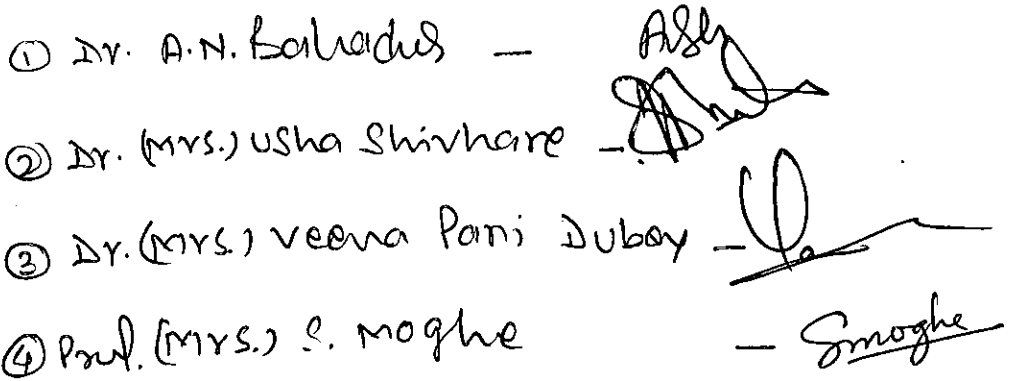 ① Dr. A.N. Bahadur –
② Dr. (Mrs.) Usha Shivhare –
③ Dr. (Mrs.) Veena Pani Dubey –
④ Prof. (Mrs.) S. Moghe – Smoghe